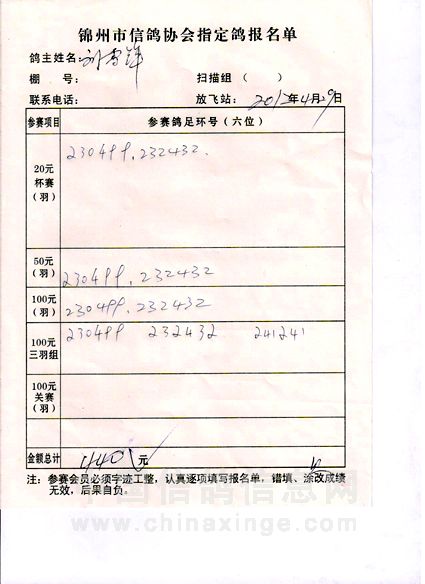 锦州市信鸽协会指定鸽报名单
鸽主姓名:
棚 号: 扫描组 ( )
联系电话: 放飞站: 2012年4月29日
参赛项目 参赛鸽足环号(六位)
20元
杯赛
(羽)
230499. 232432.
50元
(羽)
230499. 232432
100元
(羽)
230499. 232432
100元
三羽组
230499 232432 241241
100元
关赛
(羽)
金额总计 440 元
注: 参赛会员必须字迹工整, 认真逐项填写报名单, 错填、涂改成绩
无效, 后果自负。
中国信鸽信息网
www.chinaxinge.com